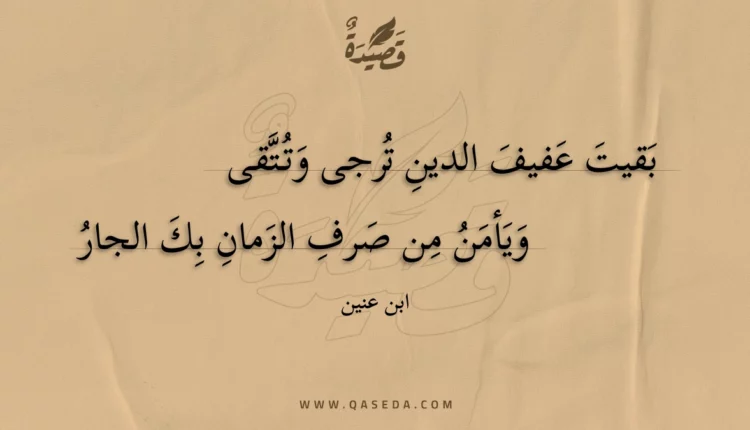 قَصِيدَةٌ
بَقيتَ عَفيفَ الدينِ تُرجى وَتُتَّقى
وَيَأمَنُ مِن صَرفِ الزَمانِ بِكَ الجارُ
ابن عنين
WWW.QASEDA.COM